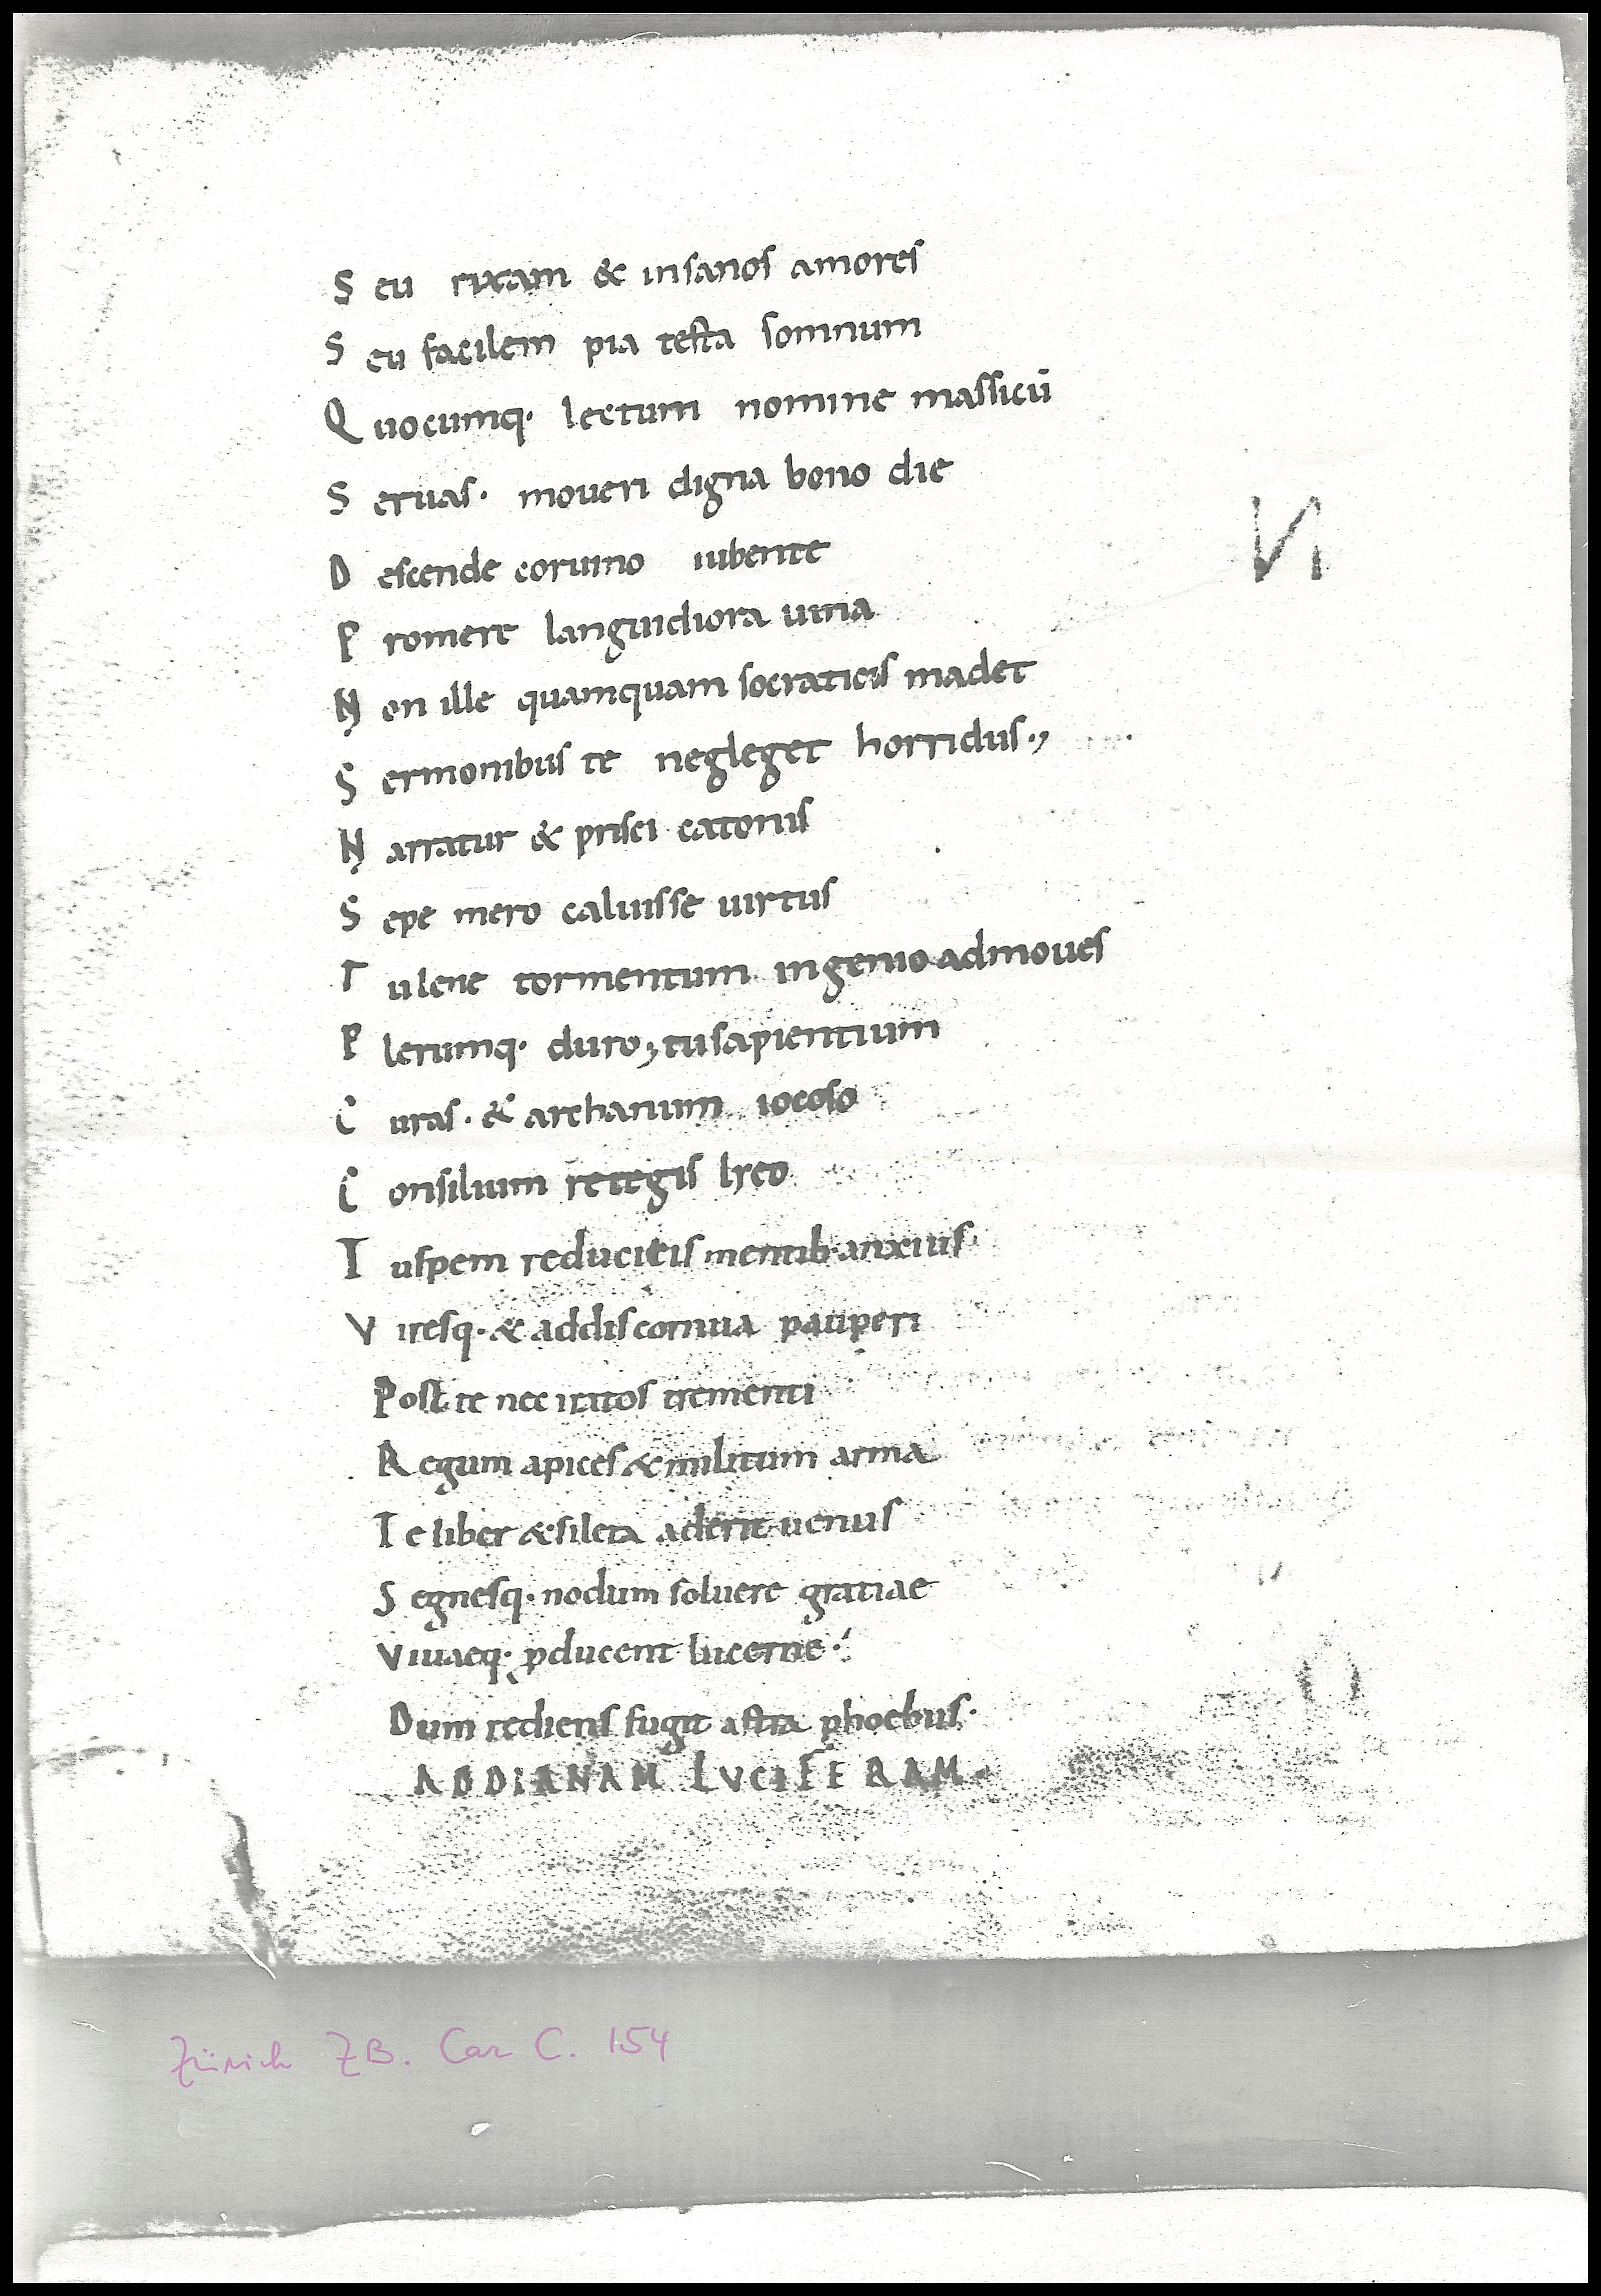 Seu rixam & insanos amores
Seu facilem pia testa somnum
Quocumq· lectum nomine massicū
Seruas· moueri digna bono die
Descende coruino iubente
Promere languidiora uina
Non ille quamquam socraticis madet
Sermonibus te negleget horridus·,
Narratur & prisci catonis
Sepe mero caluisse uirtus
Tu lene tormentum ingenio admoues
Plerumq· duro, tu sapientium
Curas· & archanum iocoso
Consilium retegis lyeo
Tu spem reducis mentib· anxiis·
Viresq· & addis cornua pauperi
Post te nec iratos trementi
Regum apices & militum arma
Te liber & si leta aderit uenus
Segnesq· nodum soluere gratiae
Viuaeq· pducent lucerne·
Dum rediens fugit astra phoebus·
AD DIANAM LVCIFERAM·
Zürich ZB. Car C. 154